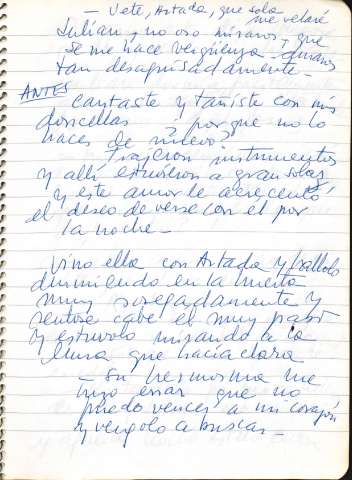 - Vete, Artada, que sola
me velaré
Julián, no oso miraros, que
se me hace vergüenza amaros
tan desaguisadamente.
ANTES
Cantaste y tañiste con mis
doncellas ¿porque no lo
haces de nuevo?
Trajeron instrumentos
y allí estuvieron a gran solaz
y este amor le acrecentó
el deseo de verse con él por
la noche-
Vino ella con Artada y hallolo
durmiendo en la huerta
muy sosegadamente y
sentose cabe él muy paso
y estuvolo mirando a la
luna que hacía clara
- Su hermosura me
hizo errar que no
puedo vencer a mi corazón
y vengolo a buscar